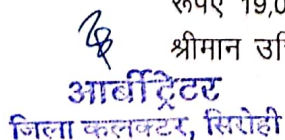 रूपए 19,0
श्रीमान उि
आर्बीट्रेटर
जिला कलक्टर, सिरोही